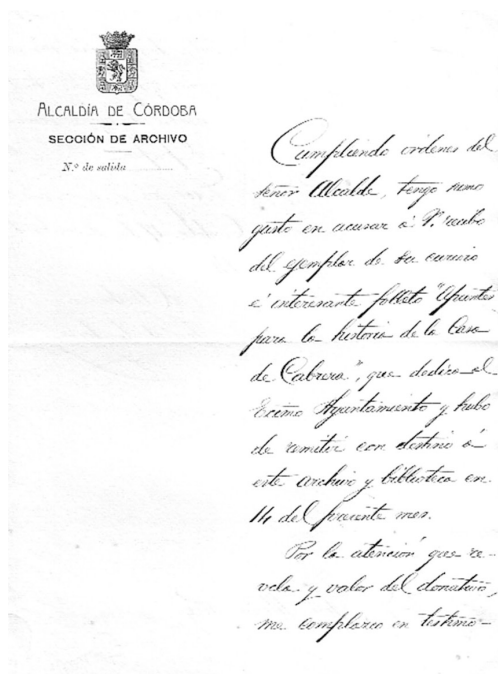 ALCALDÍA DE CÓRDOBA
SECCIÓN DE ARCHIVO
N.º de salida
Cumpliendo órdenes del
señor Alcalde, tengo sumo
gusto en acusar á V. recibo
del ejemplar de su curioso
é interesante folleto "Apuntes
para la historia de la Casa
de Cabrera", que dedica al
Excmo Ayuntamiento y hubo
de remitir con destino á
este archivo y biblioteca en
14 del presente mes.
Por la atención que re-
vela y valor del donativo,
me complazco en testimo-